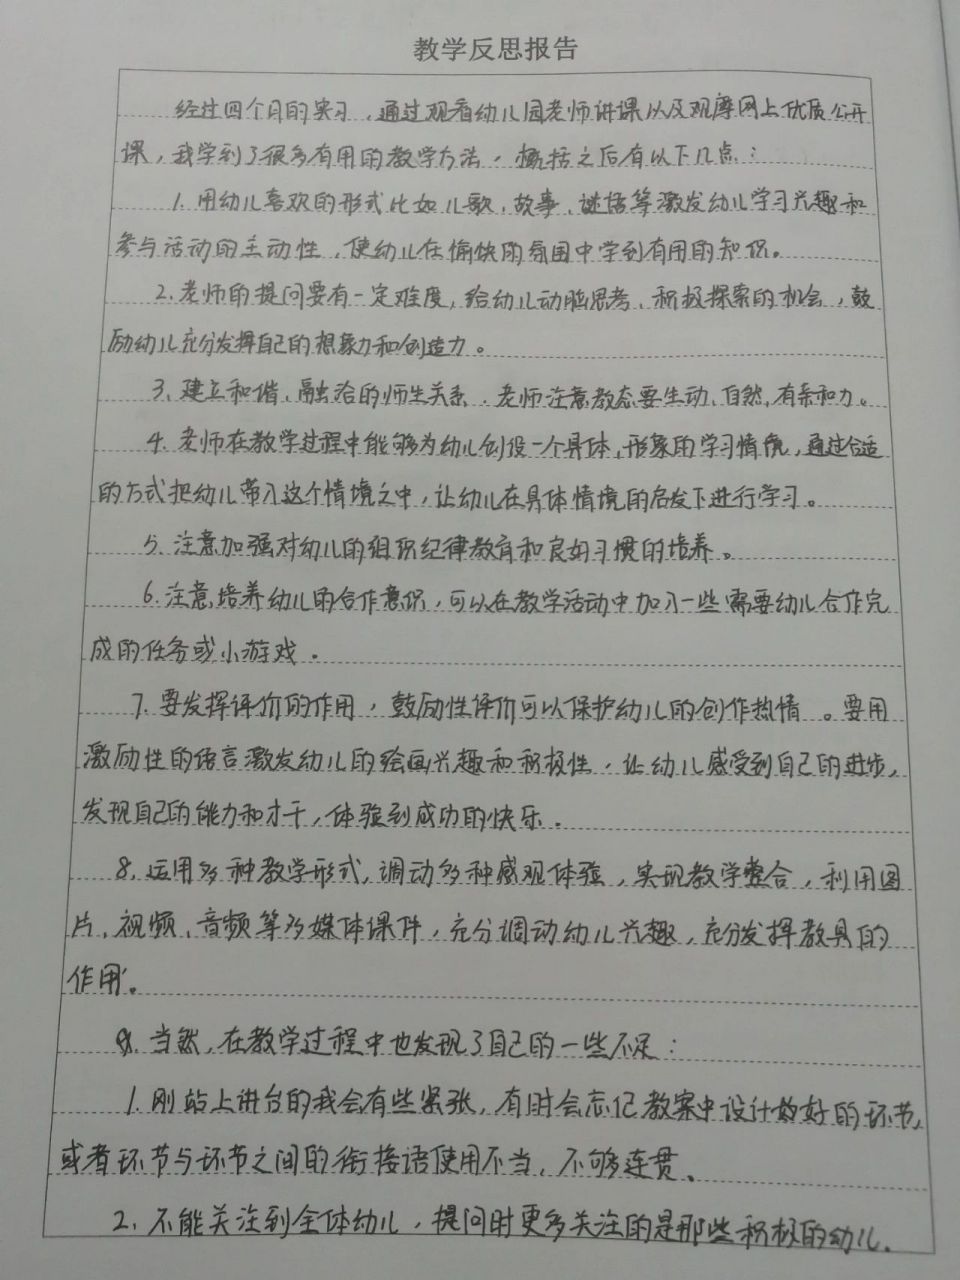 教学反思报告
经过四个月的实习，通过观看幼儿园老师讲课以及观摩网上优质公开
课，我学到了很多有用的教学方法，概括之后有以下几点：
1. 用幼儿喜欢的形式比如儿歌、故事、谜语等激发幼儿学习兴趣和
参与活动的主动性，使幼儿在愉快的氛围中学到有用的知识。
2. 老师的提问要有一定难度，给幼儿动脑思考、积极探索的机会，鼓
励幼儿充分发挥自己的想象力和创造力。
3、建立和谐、融洽的师生关系。老师注意教态要生动、自然，有亲和力。
4. 老师在教学过程中能够为幼儿创设一个具体，形象的学习情境，通过合适
的方式把幼儿带入这个情境之中，让幼儿在具体情境的启发下进行学习。
5. 注意加强对幼儿的组织纪律教育和良好习惯的培养。
6. 注意培养幼儿的合作意识，可以在教学活动中加入一些需要幼儿合作完
成的任务或小游戏．
7. 要发挥评价的作用，鼓励性评价可以保护幼儿的创作热情 。要用
激励性的语言激发幼儿的绘画兴趣和积极性，让幼儿感受到自己的进步，
发现自己的能力和才干，体验到成功的快乐．
8. 运用多种教学形式，调动多种感观体验，实现教学整合，利用图
片、视频、音频等多媒体课件，充分调动幼儿兴趣，充分发挥教具的
作用。
当然，在教学过程中也发现了自己的一些不足：
1. 刚站上讲台的我会有些紧张，有时会忘记教案中设计好的环节，
或者环节与环节之间的衔接语使用不当，不够连贯、
2、不能关注到全体幼儿，提问时更多关注的是那些积极的幼儿．